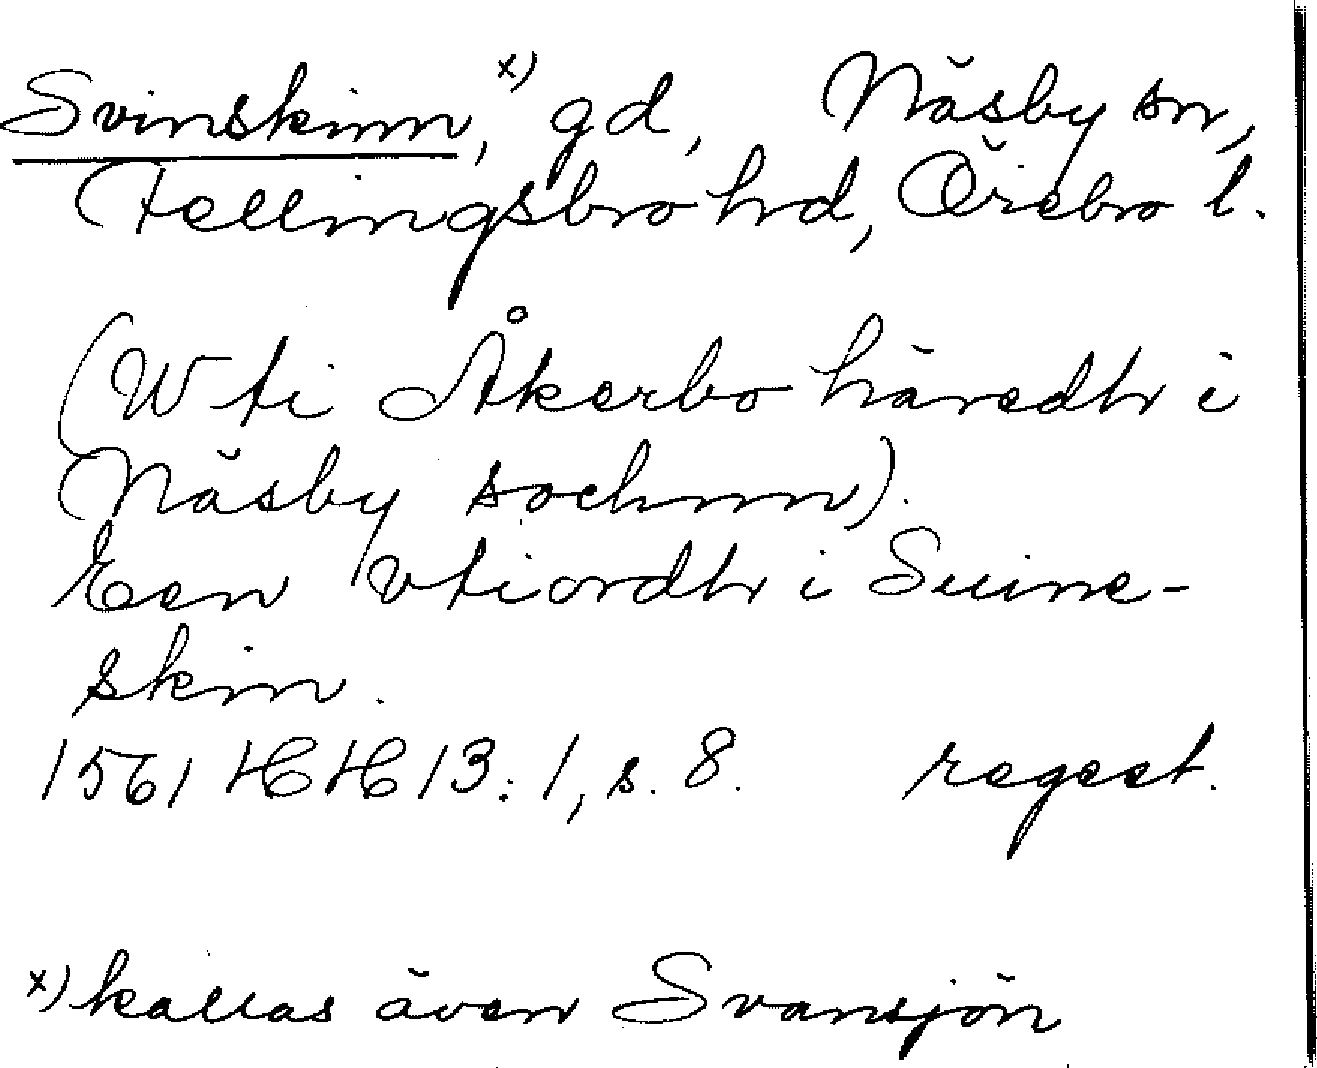 Svinskinn,ˣ⁾ gd, Näsby sn,
Fellingsbro hrd, Örebro l.
(Wti Åkerbo häredh i
Näsby sochnn).
Een vtiordh i Suine-
skin.
1561 HH 13:1, s. 8. regest.
x) kallas även Svansjön